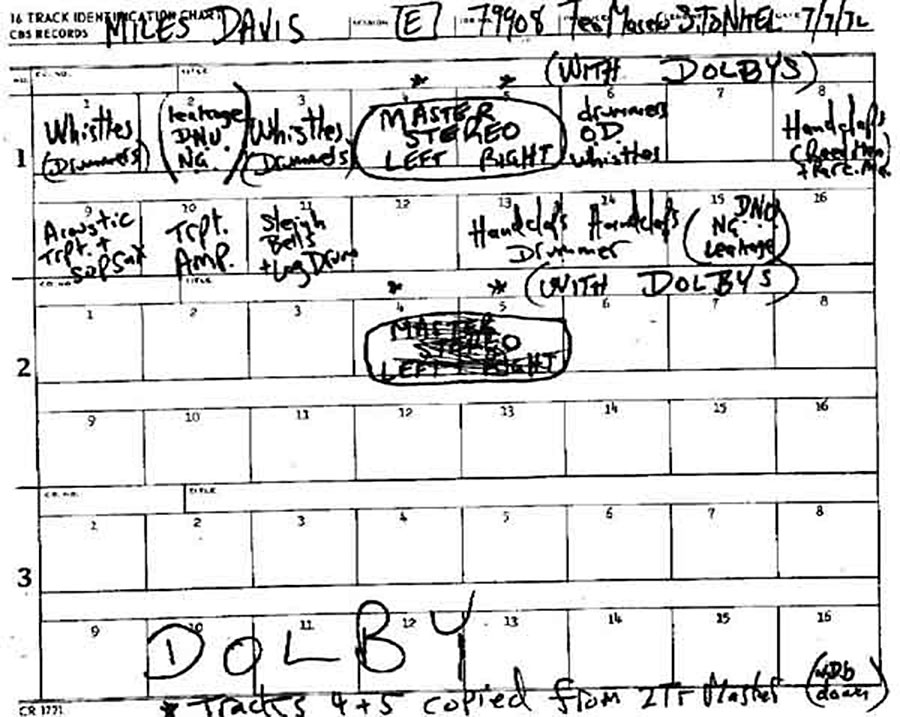 16 TRACK IDENTIFICATION CHART
CBS RECORDS MILES DAVIS E 79908 Teo Macero S. TONKEL 7/7/72
TITLE
* * (WITH DOLBYS)
1
1 2 3 4 5 6 7 8
Whistles (Drummers)
(Leakage DNU NG.)
Whistles (Drummers)
MASTER STEREO LEFT RIGHT
drummers OD whistles
Handclaps
9 10 11 12 13 14 15 16
Acoustic Trpt. + Sop Sax
Trpt. Amp.
Sleigh Bells + Log Drum
Handclaps Handclaps
Drummer
(DNU NG. Leakage)
CO. NO. TITLE
* * (WITH DOLBYS)
2
1 2 3 4 5 6 7 8
MASTER
STEREO
LEFT RIGHT
9 10 11 12 13 14 15 16
CO. NO. TITLE
3
1 2 3 4 5 6 7 8
9 10 11 12 13 14 15 16
DOLBY
* Tracks 4+5 copied from 2Tr Master
down)
CR 1771